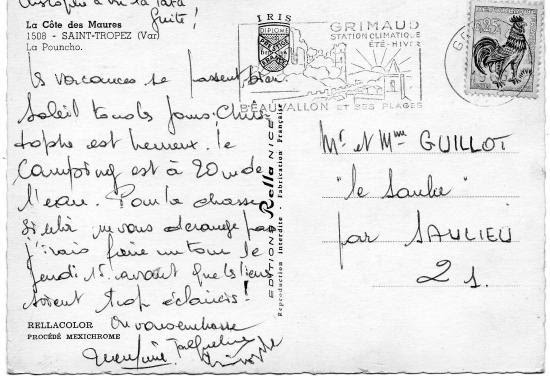 Christophe a vu la
fuite !
La Côte des Maures
1508 - SAINT-TROPEZ (Var)
La Pouncho.
Les vacances se passent bien.
Soleil tous les jours. Chris
tophe est heureux. le
Camping est à 20 m de
l'eau. Pour la chasse
si celà ne vous dérange pas
j'irais faire un tour le
jeudi 15. avant que les liens
soient trop éclaircis !
On vous embrasse
Jacqueline
Christophe
RELLACOLOR
PROCÉDÉ MEXICHROME
EDITIONS Rella NICE
Reproduction Interdite - Fabrication Française
IRIS
DIPLOME
GRIMAUD
STATION CLIMATIQUE
ÉTÉ-HIVER
BEAUVALLON ET SES PLAGES
0,25
Mr et Mme GUILLOT
"le Saulie"
par SAULIEU
21.